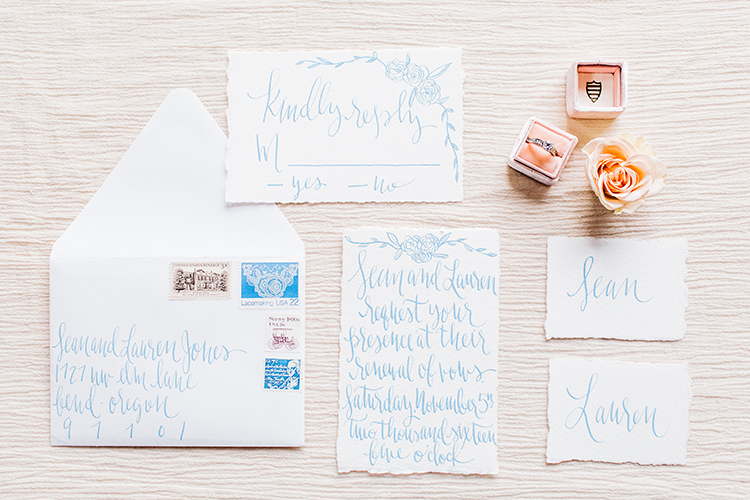 Kindly reply
M
yes no
Lacemaking USA 22
Sean and Lauren Jones
1727 nw elm lane
bend. oregon
97701
Sean and Lauren
request your
presence at their
renewal of vows
Saturday November 5th
two thousand sixteen
five o'clock
Sean
Lauren